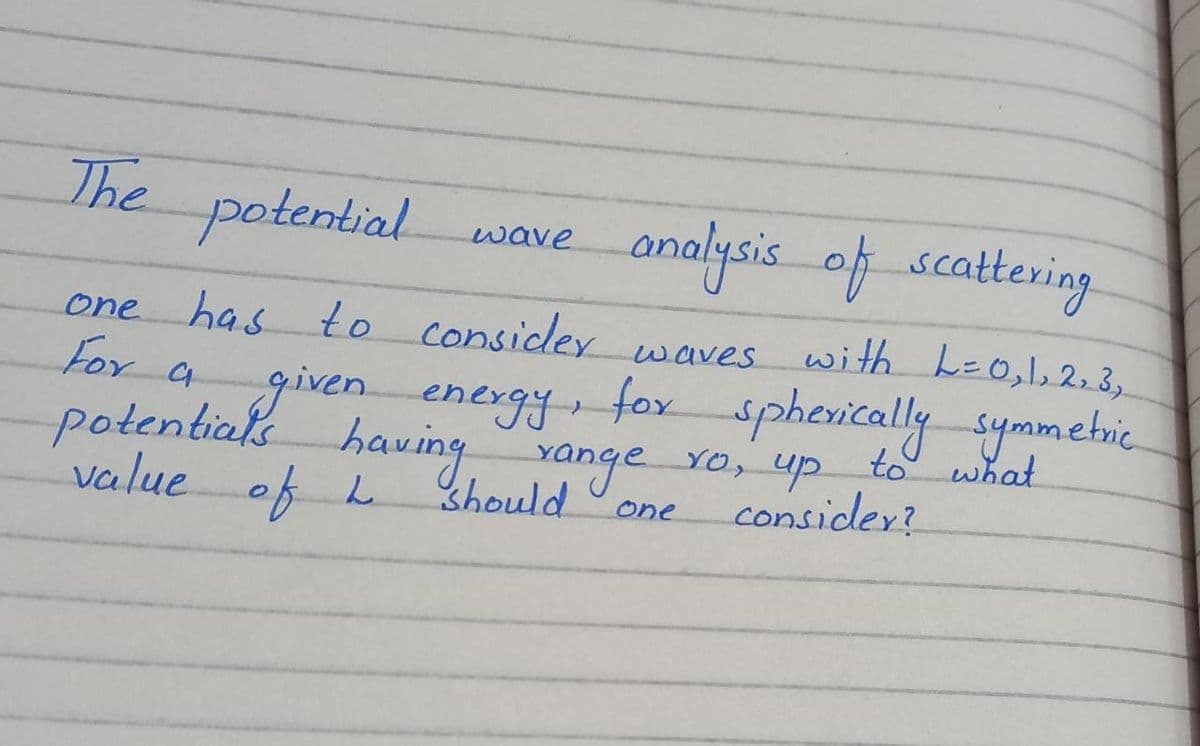 The potential wave analysis of scattering
one has to consider waves with L=0,1,2,3,
For a given energy, for spherically symmetric
potentials having range ro, up to what
value of L should one consider?